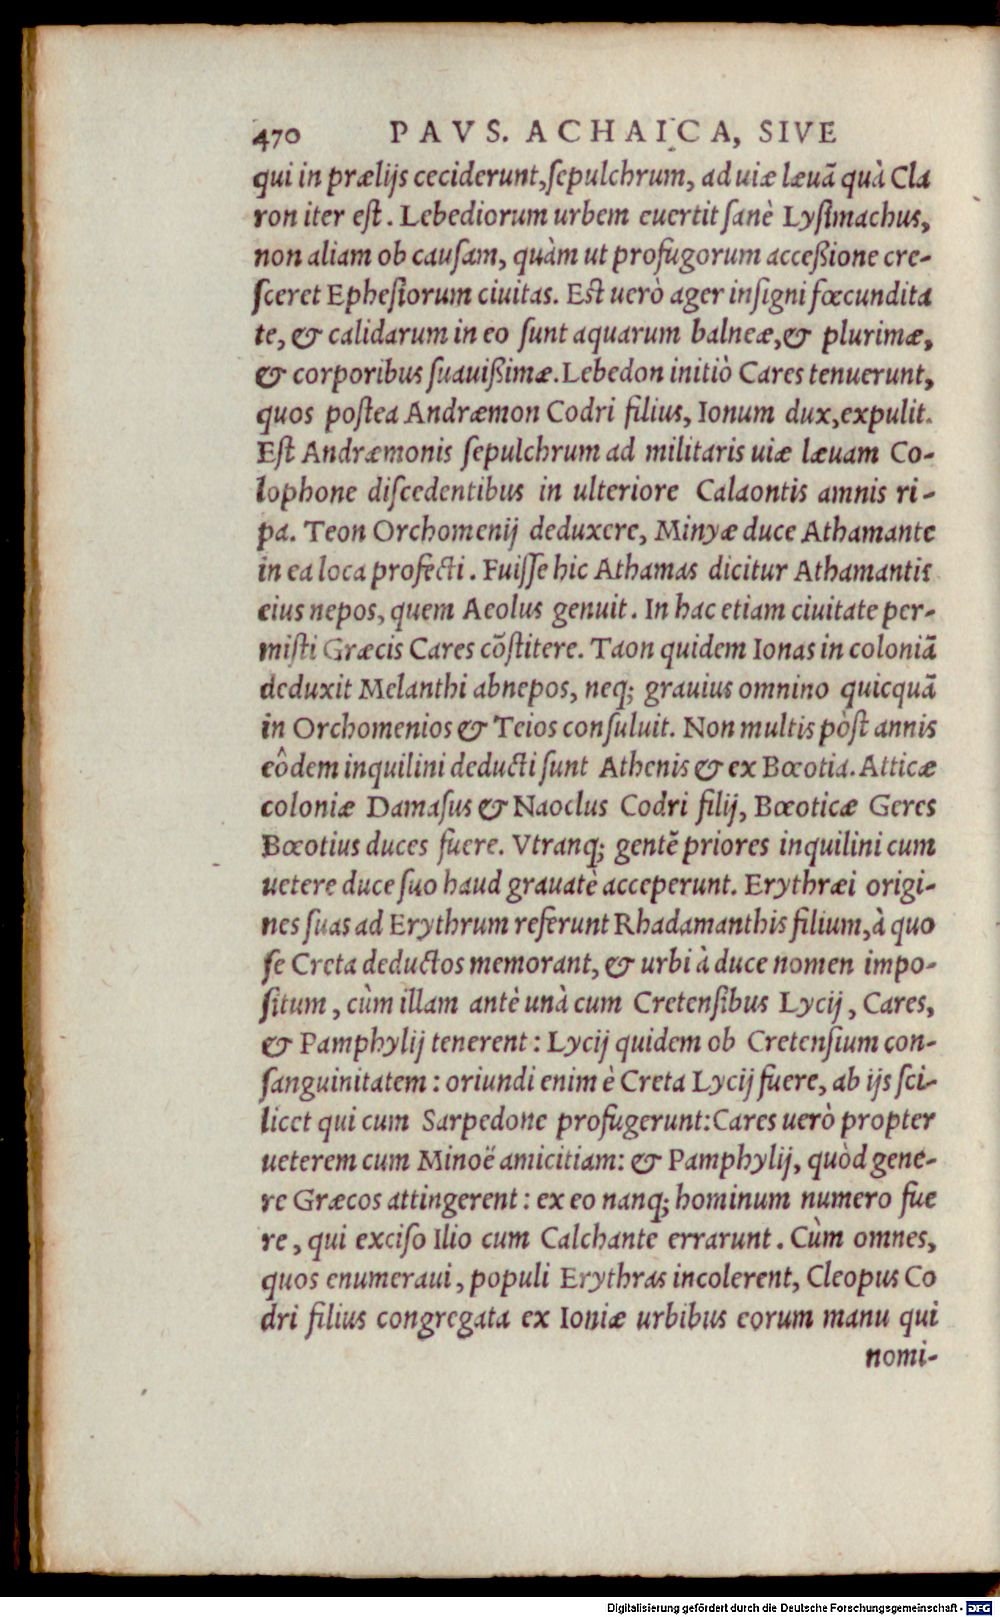 470 PAVS. ACHAICA, SIVE
qui in prælijs ceciderunt, ſepulchrum, ad uiæ læuā quà Cla
ron iter eſt. Lebediorum urbem euertit ſanè Lyſimachus,
non aliam ob cauſam, quàm ut profugorum acceßione cre-
ſceret Epheſiorum ciuitas. Eſt uerò ager inſigni fœcundita
te, & calidarum in eo ſunt aquarum balneæ, & plurimæ,
& corporibus ſuauißimæ. Lebedon initiò Cares tenuerunt,
quos poſtea Andræmon Codri filius, Ionum dux, expulit.
Eſt Andræmonis ſepulchrum ad militaris uiæ læuam Co-
lophone diſcedentibus in ulteriore Calaontis amnis ri-
pa. Teon Orchomenij deduxere, Minyæ duce Athamante
in ea loca profecti. Fuiſſe hic Athamas dicitur Athamantis
eius nepos, quem Aeolus genuit. In hac etiam ciuitate per-
miſti Græcis Cares cōſtitere. Taon quidem Ionas in coloniā
deduxit Melanthi abnepos, neq; grauius omnino quicquā
in Orchomenios & Teios conſuluit. Non multis pòſt annis
eôdem inquilini deducti ſunt Athenis & ex Bœotia. Atticæ
coloniæ Damaſus & Naoclus Codri filij, Bœoticæ Geres
Bœotius duces fuere. Vtranq; gentē priores inquilini cum
uetere duce ſuo haud grauatè acceperunt. Erythræi origi-
nes ſuas ad Erythrum referunt Rhadamanthis filium, à quo
ſe Creta deductos memorant, & urbi à duce nomen impo-
ſitum, cùm illam antè unà cum Cretenſibus Lycij, Cares,
& Pamphylij tenerent: Lycij quidem ob Cretenſium con-
ſanguinitatem: oriundi enim è Creta Lycij fuere, ab ijs ſci-
licet qui cum Sarpedone profugerunt: Cares uerò propter
ueterem cum Minoë amicitiam: & Pamphylij, quòd gene-
re Græcos attingerent: ex eo nanq; hominum numero fue
re, qui exciſo Ilio cum Calchante errarunt. Cùm omnes,
quos enumeraui, populi Erythras incolerent, Cleopus Co
dri filius congregata ex Ioniæ urbibus eorum manu qui
nomi-
Digitalisierung gefördert durch die Deutsche Forschungsgemeinschaft - DFG